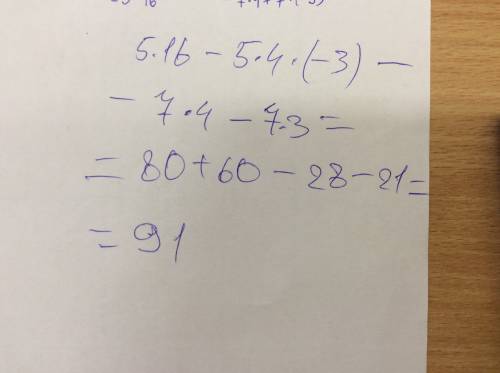 5·16 - 5·4·(-3) -
- 7·4 - 7·3 =
= 80 + 60 - 28 - 21 =
= 91